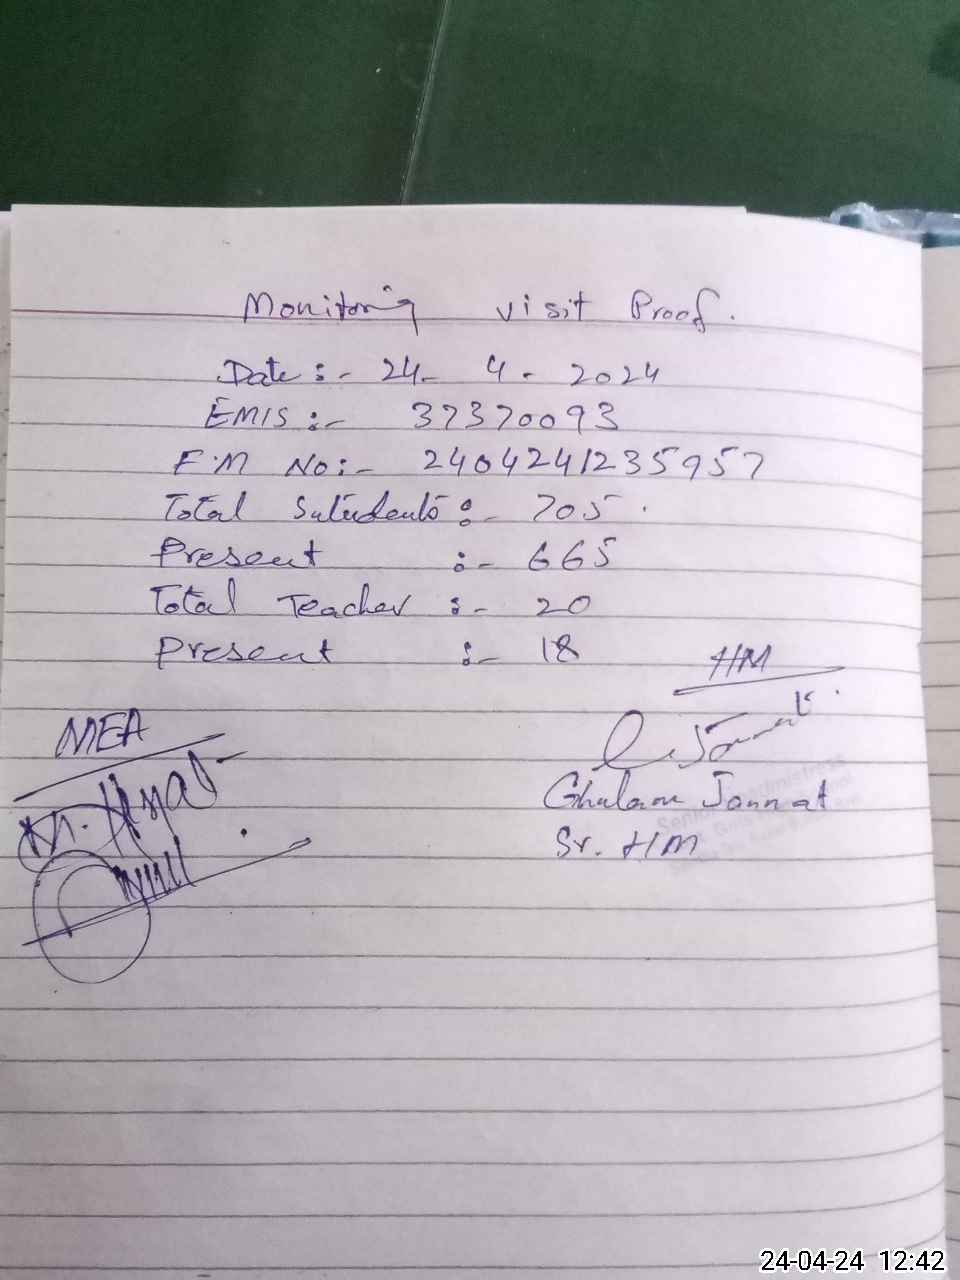 Monitoring visit Proof.
Date :- 24- 4 - 2024
EMIS :- 37370093
F.M No :- 2404241235957
Total Sutudents :- 705.
Present :- 665
Total Teacher :- 20
Present :- 18
HM
MEA
Ghulam Jannat
Sr. HM
24-04-24 12:42